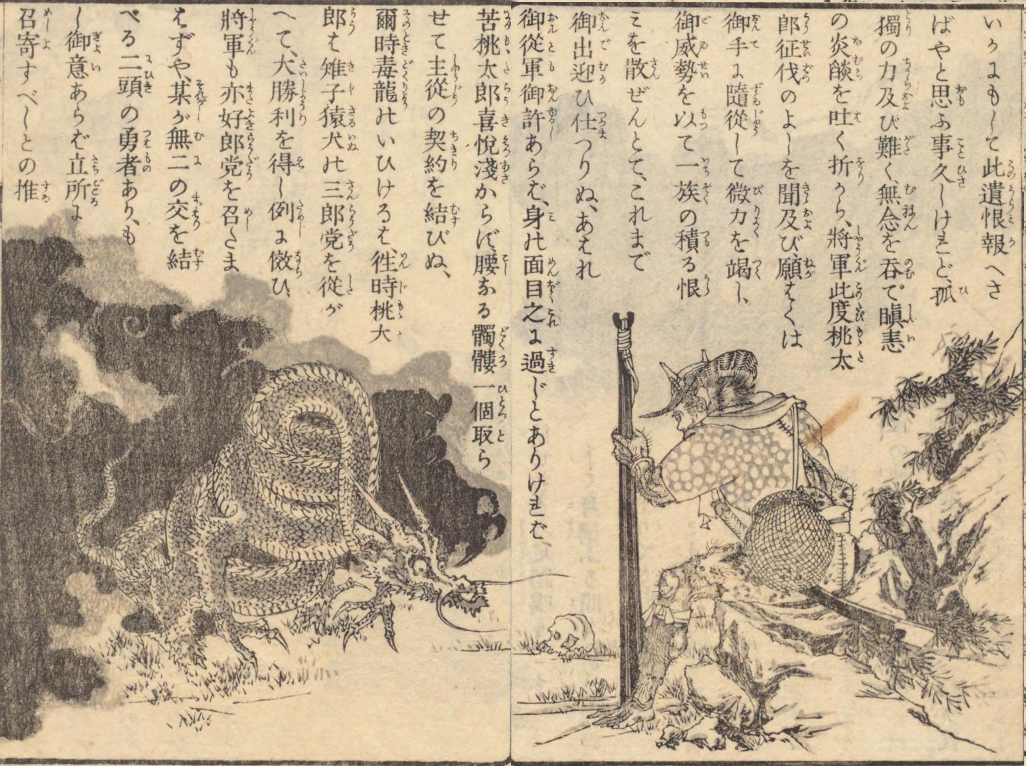 いかにもして此遺恨報へさ
ばやと思ふ事久しけれど、孤
獨の力及び難く、無念を呑で瞋恚
の炎燄を吐く折から、將軍此度桃太
郎征伐のよしを聞及び、願はくは
御手に隨從して微力を竭し、
御威勢を以て一族の積る恨
みを散ぜんとて、これまで
御出迎ひ仕つりぬ、あはれ
御從軍御許あらば、身の面目之に過じとありければ、
苦桃太郎喜悅淺からず、腰なる髑髏一個取ら
せて主從の契約を結びぬ、
爾時毒龍のいひけるは、徃時桃太
郎は雉子猿犬の三郎党を從が
へて、大勝利を得し例に傚ひ
將軍も亦好郎党を召たま
はずや、某が無二の交を結
べる二頭の勇者あり、も
し御意あらば立所に
召寄すべしとの推